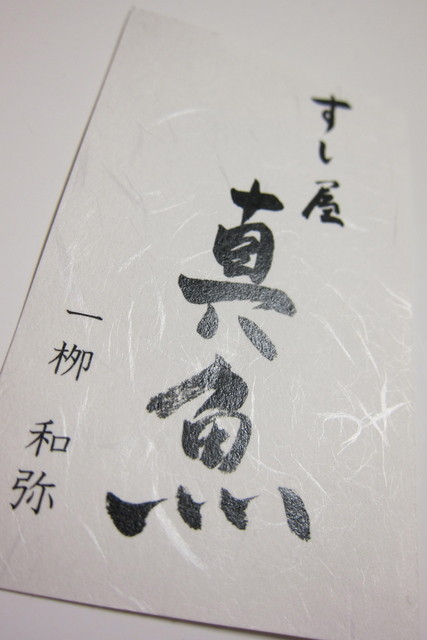 すし屋
真魚
一栁 和弥